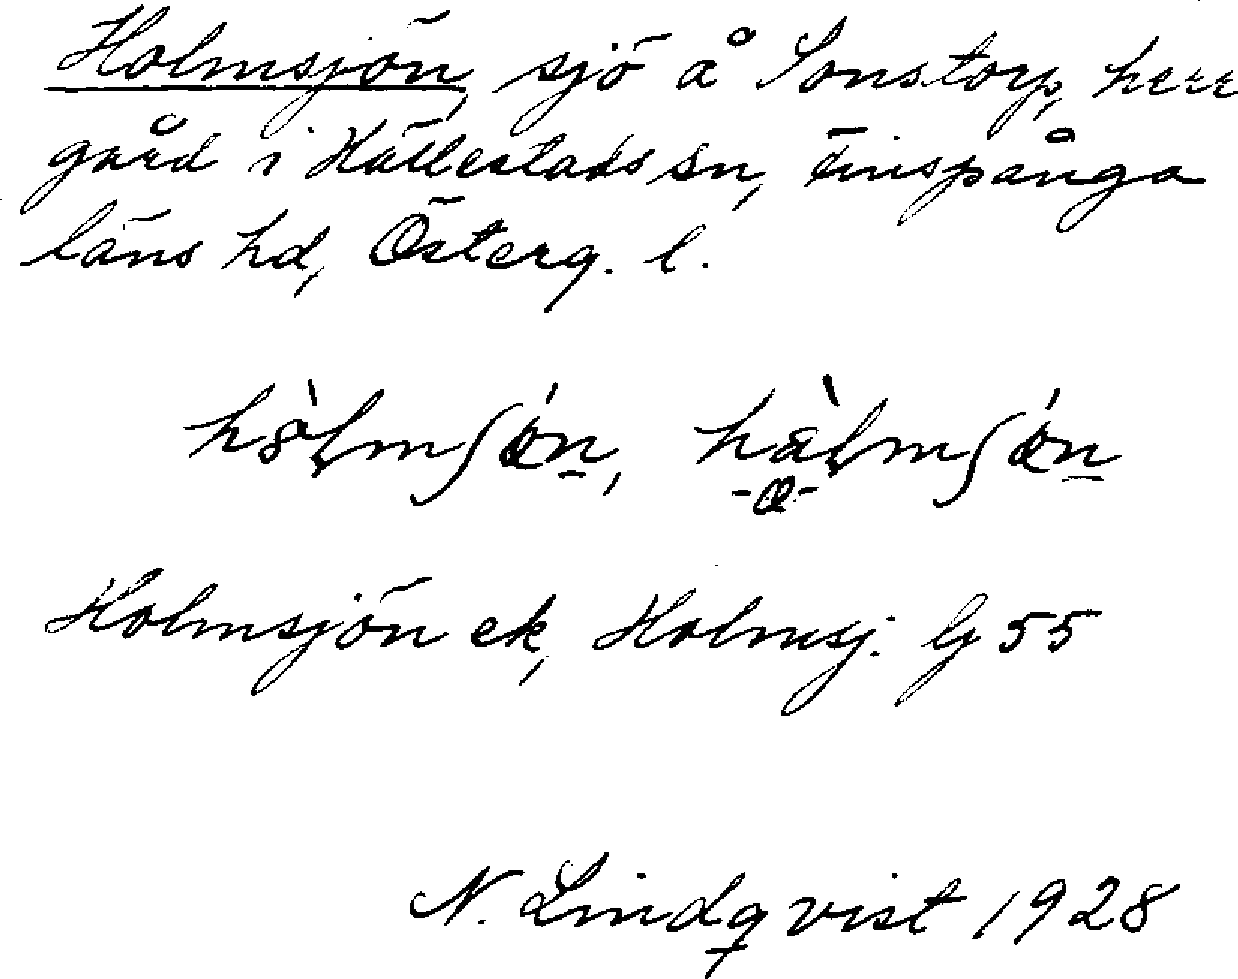 Holmsjön, sjö å Sonstorp, herr
gård i Hällestads sn, Finspånga
läns hd, Österg. l.
Holmsjön ek, Holmsj. Gj 55
N. Lindqvist 1928